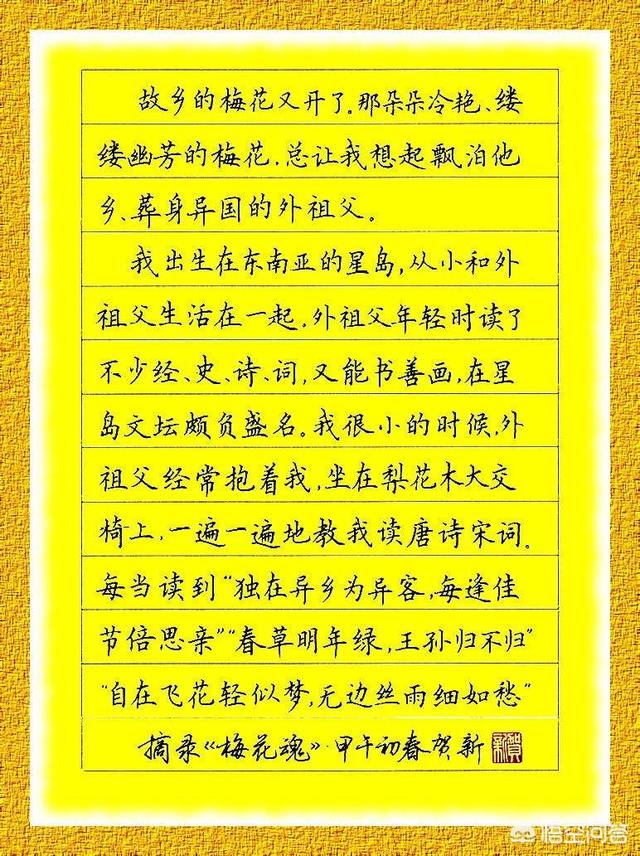 故乡的梅花又开了。那朵朵冷艳、缕
缕幽芳的梅花,总让我想起飘泊他
乡、葬身异国的外祖父。
我出生在东南亚的星岛,从小和外
祖父生活在一起,外祖父年轻时读了
不少经、史、诗、词,又能书善画,在星
岛文坛颇负盛名。我很小的时候,外
祖父经常抱着我,坐在梨花木大交
椅上,一遍一遍地教我读唐诗宋词。
每当读到“独在异乡为异客,每逢佳
节倍思亲”“春草明年绿,王孙归不归”
“自在飞花轻似梦,无边丝雨细如愁”
摘录《梅花魂》·甲午初春贺新
悟空问答